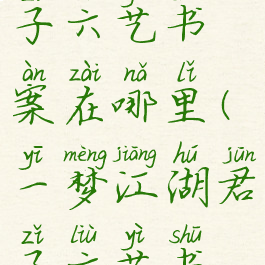 子六艺书
àn zài nǎ lǐ
案在哪里(
yī mèng jiāng hú jūn
一梦江湖君
zǐ liù yì shū
子六艺书